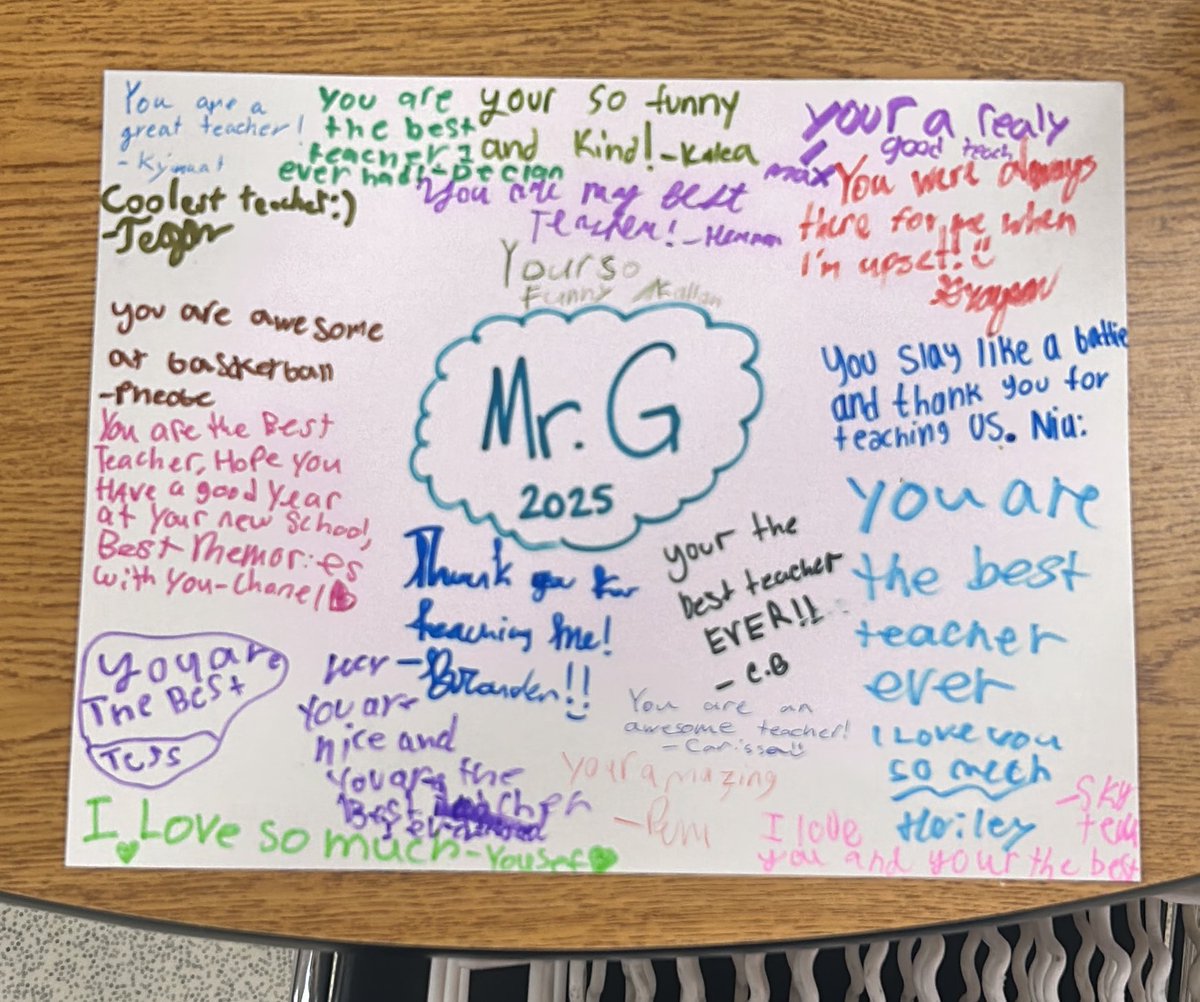 You are a
great teacher!
You are
the best
teacher I
ever had! - Declan
your so funny
and Kind! - Kalea
your a realy
good teach
max
Coolest teacher :)
You are my Best
Teacher! -
You were always
there for me when
I'm upset!
Grayson
Yourso
Funny Kallan
you are awesome
at basketball
- Pheobe
Mr. G
2025
You slay like a battie
and thank you for
teaching US. Nia:
You are the Best
Teacher, Hope you
Have a good year
at your new school,
Best Memories
with you - Chanel
Thank you for
teaching me!
- Branden!!
your the
best teacher
EVER!!
- C.B
you are
the best
teacher
ever
I Love you
so mech
Hailey
you are
The Best
Tess
You are
nice and
you are the
Best
You are an
awesome teacher!
- Carissa
your amazing
I Love so much - Yousef
I love
you and your the best
teach
- Sky